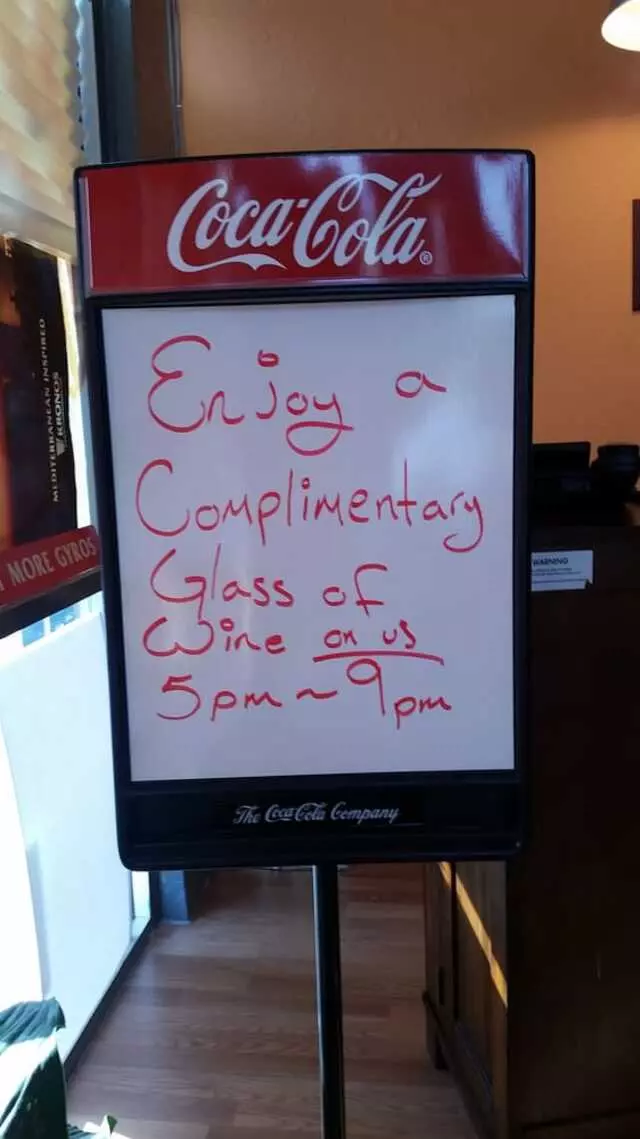 Coca-Cola®
Enjoy a
Complimentary
Glass of
Wine on us
5pm ~ 9pm
The Coca-Cola Company
MEDITERRANEAN INSPIRED
KRONOS
MORE GYROS
WARNING